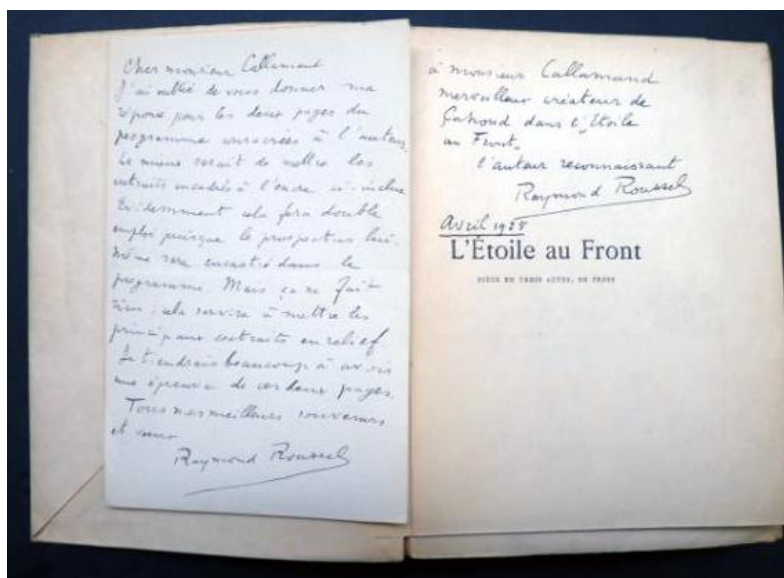 Cher monsieur Callamand
J'ai oublié de vous donner ma
réponse pour les deux pages du
programme consacrées à l'auteur.
Le mieux serait de mettre les
extraits encadrés à l'encre ci-inclus
Evidemment cela fera double
emploi puisque le prospectus lui-
même sera encastré dans le
programme. Mais ça ne fait
rien : cela servira à mettre les
principaux extraits en relief
Je tiendrais beaucoup à avoir
une épreuve de ces deux pages.
Tous mes meilleurs souvenirs
et
Raymond Roussel
à monsieur Callamand
merveilleux créateur de
dans l'Etoile
au Front,
l'auteur reconnaissant
Raymond Roussel
Avril 1928
L'Étoile au Front
PIÈCE EN TROIS ACTES, EN PROSE